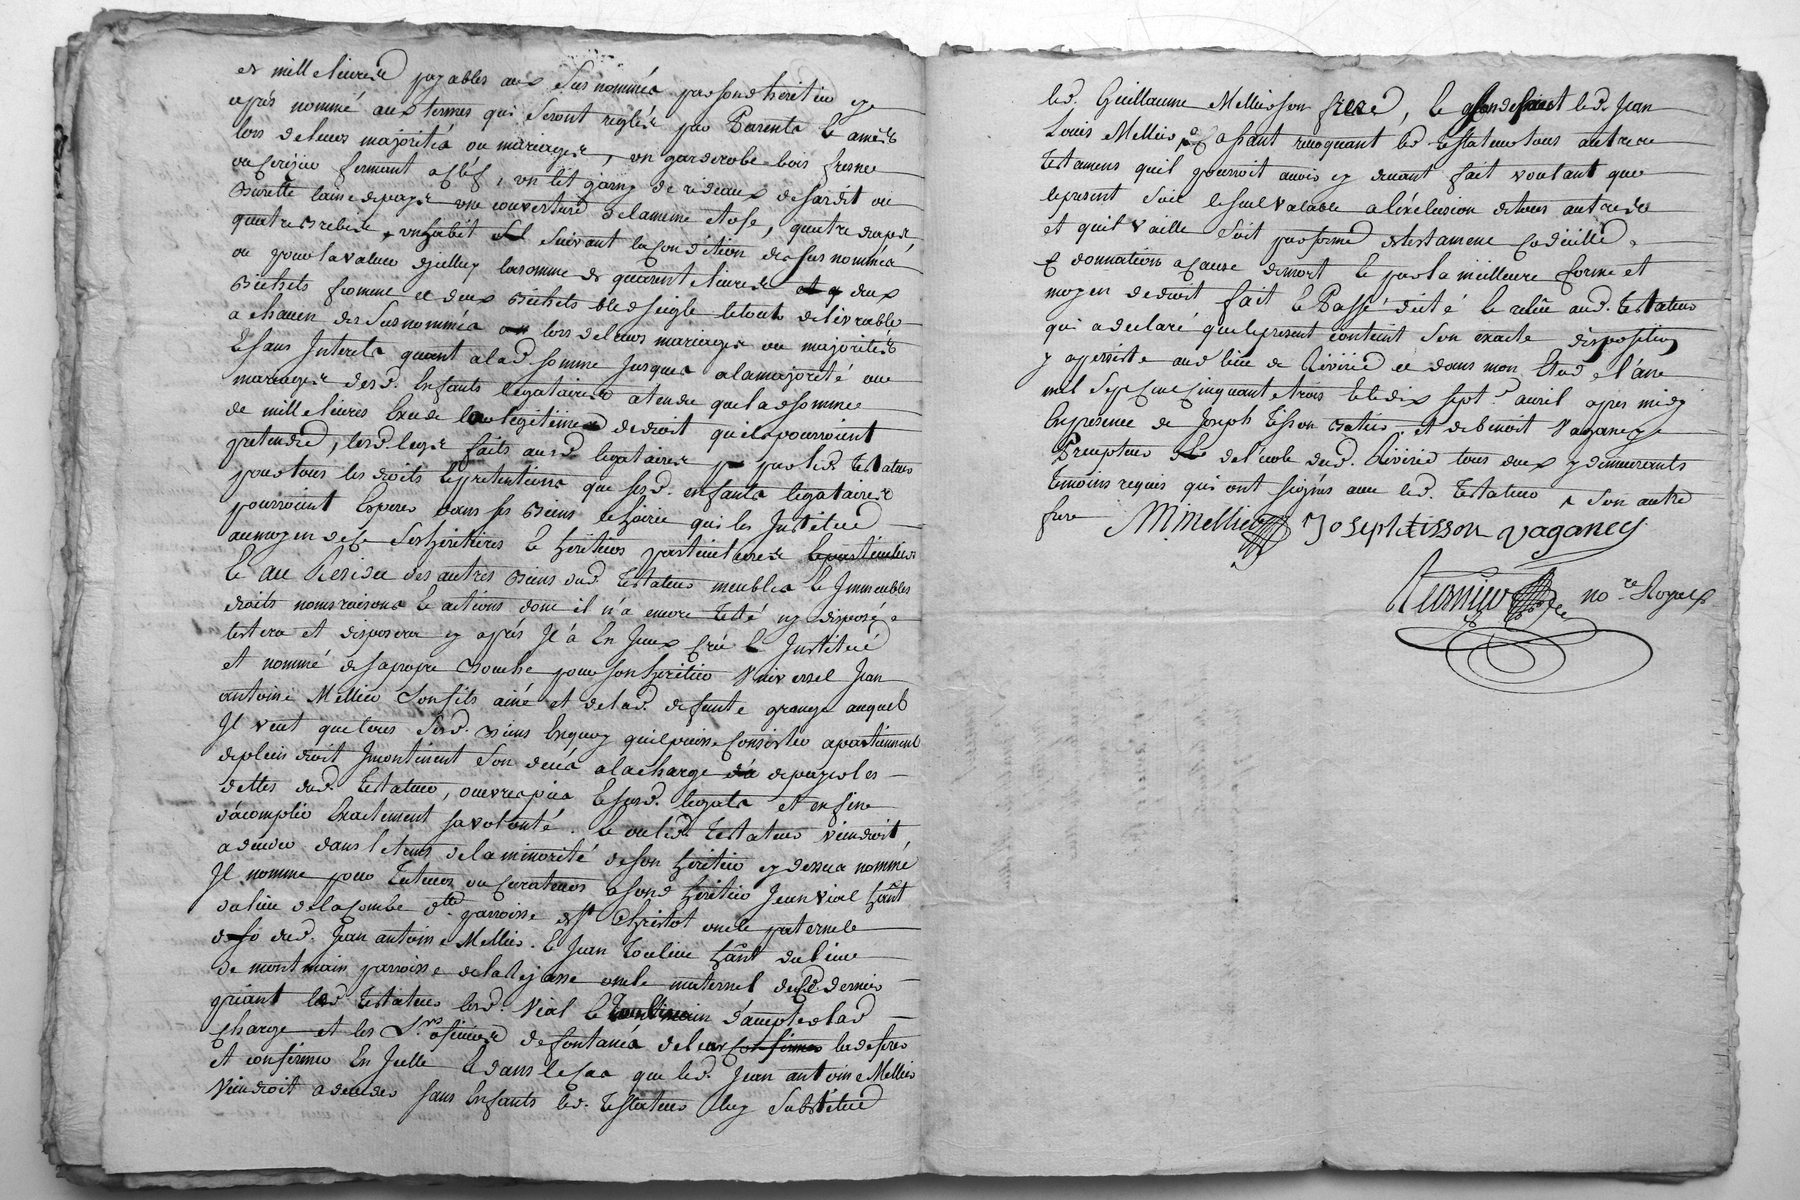 et mille livres payables aux susnommés par son heritier cy
après nommé aux termes qui seront reglés par Parents et amis
lors de leurs majorités ou mariages, un garderobe bois fresne
ou cerisier fermant a clef, un lit garny de rideaux de sardit ou
Burette laine de pays une couverture de la meme etofe, quatre draps
quatre brebis, un habit suivant la condition des susnommés
ou pour la valeur d'jcelluy la somme de quarante livres deux
Bichets fromme et deux Bichets bled seigle le tout delivrable
a chacun des susnommés lors de leurs mariages ou majorités
Et sans Interets quant a lad. somme jusques a la majorité ou
mariages desd. Enfants legataires atendu que lad somme
de mille livres Excede leur legitime de droit qu'ils pourroient
pretendre, lesd. legs faits ausd. legataires par led. Testateur
pour tous les droits et pretentions que sesd. enfants legataires
pourroient Esperer dans ses Biens et hoirie qui les Institue
au moyen de ce ses heritieres et heritiers particulieres
Et au Residu des autres Biens dud. Testateur meubles et Immeubles
droits noms raisons et actions dont il n'a encore Testé ny disposé
testera et disposera cy après Il a En Jceux Créé et Institué
et nommé de sa propre Bouche pour son heritier Universel Jean
antoine Mellier son fils ainé et de lad. defunte grange auquel
Il veut que tous sesd. Biens Enquoy qu'il puisse Consister apartiennent
de plein droit Jncontinent son décés a la charge de payer les
dettes dud. Testateur, œuvres pies et susd. legats et enfin
d'acomplir Exactement sa volonté. Et ou led. Testateur viendroit
a deceder dans le tems de la minorité de son heritier cy dessus nommé
Il nomme pour Tuteurs ou Curateurs a sond heritier Jean Vial hant
du lieu de la Combe dte. parroisse de st Christot oncle paternele
dud. Jean antoine Mellier. Et Jean Toulieu hant du lieu
de montmain parroisse de la Rejasse oncle maternel dud. dernier
priant led Testateur lesd. Vial et d'accepter lad
Charge et les Srs. oficiers de fontanés de leur la deferer
et confirmer En Jcelle Et dans le cas que led. Jean antoine Mellier
viendroit a deceder sans Enfants led. Testateur luy substitue
led. Guillaume Mellier son frere, led. Jean
Louis Mellier Cassant revoquant led Testateur tous autres
Testamens qu'il pourroit avoir cy devant fait voulant que
le present soit le seul valable a l'exclusion de tous autres
et qu'il vaille soit par forme de testament codicille
et donnation a cause de mort et par la meilleure forme et
moyen de droit fait et Passé dicté et relû aud. Testateur
qui a declaré que le present contient son exacte disposition
y aud lieu de Riviere et dans mon Etude l'an
mil sept cent cinquante trois et le dix sept.e avril apres midy
En presence de Joseph Tisson et de benoit Vaganey
Precepteur de l'ecole dud. Riviere tous deux y demeurants
temoins requis qui ont signés avec led. Testateur et son autre
frere M. Mellier Joseph tisson vaganey
nore. Royal